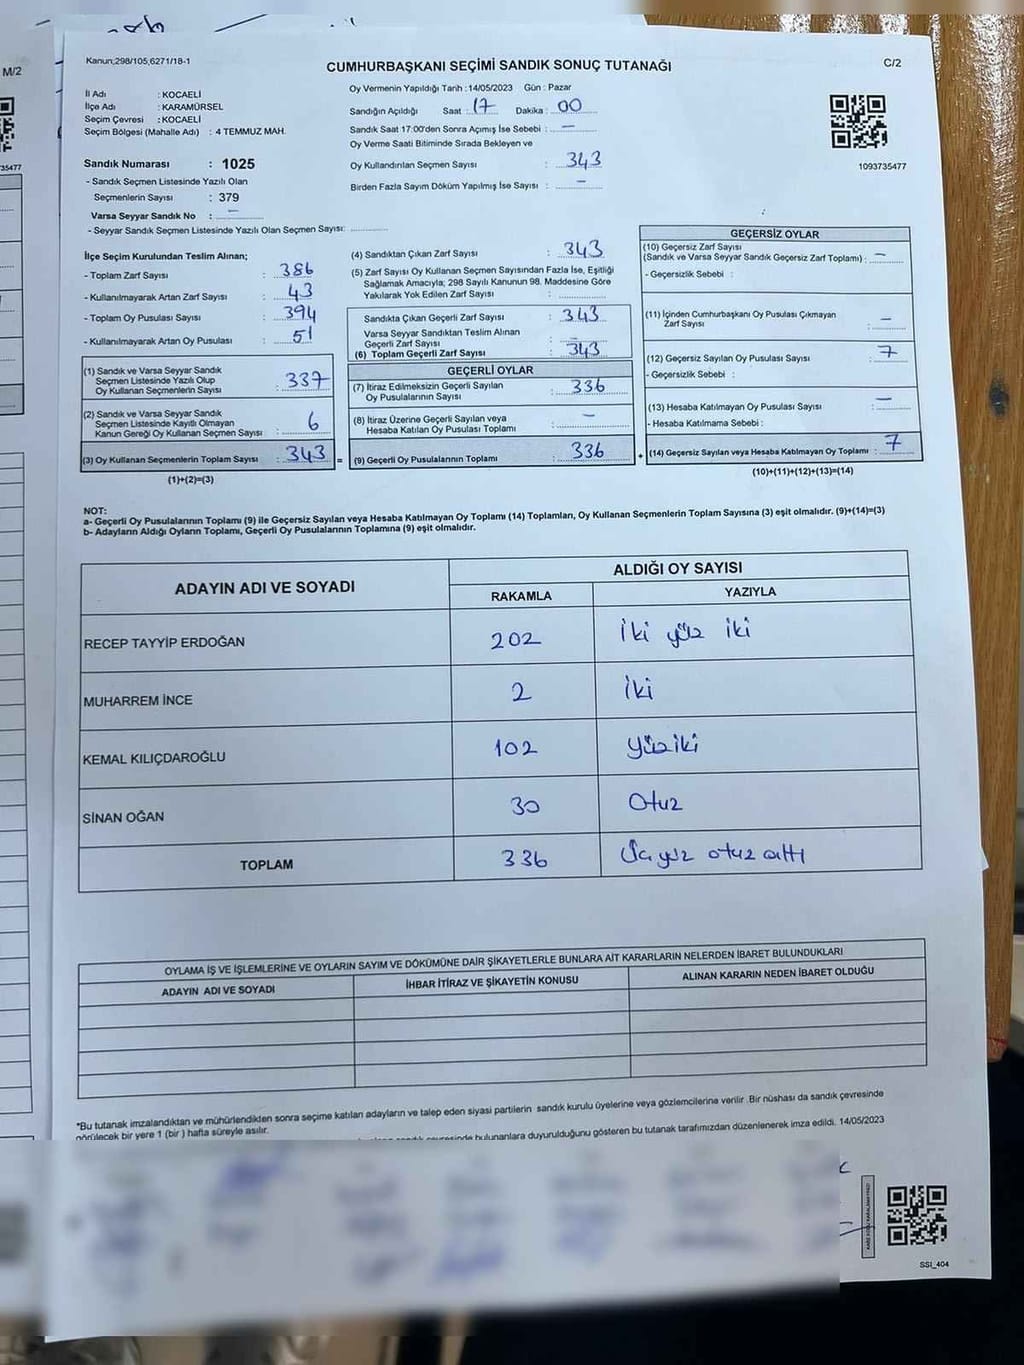 M/2
35477
Kanun;298/105,6271/18-1
CUMHURBAŞKANI SEÇİMİ SANDIK SONUÇ TUTANAĞI
C/2
İl Adı : KOCAELİ
İlçe Adı : KARAMÜRSEL
Seçim Çevresi : KOCAELİ
Seçim Bölgesi (Mahalle Adı) : 4 TEMMUZ MAH.
Sandık Numarası : 1025
- Sandık Seçmen Listesinde Yazılı Olan
Seçmenlerin Sayısı : 379
Varsa Seyyar Sandık No : –
- Seyyar Sandık Seçmen Listesinde Yazılı Olan Seçmen Sayısı: ..............
Oy Vermenin Yapıldığı Tarih : 14/05/2023 Gün : Pazar
Sandığın Açıldığı Saat : 17 Dakika : 00
Sandık Saat 17:00'den Sonra Açımış İse Sebebi : –
Oy Verme Saati Bitiminde Sırada Bekleyen ve
Oy Kullandırılan Seçmen Sayısı : 343
Birden Fazla Sayım Döküm Yapılmış İse Sayısı : –
1093735477
İlçe Seçim Kurulundan Teslim Alınan;
- Toplam Zarf Sayısı : 386
- Kullanılmayarak Artan Zarf Sayısı : 43
- Toplam Oy Pusulası Sayısı : 394
- Kullanılmayarak Artan Oy Pusulası : 51
(1) Sandık ve Varsa Seyyar Sandık
Seçmen Listesinde Yazılı Olup
Oy Kullanan Seçmenlerin Sayısı : 337
(2) Sandık ve Varsa Seyyar Sandık
Seçmen Listesinde Kayıtlı Olmayan
Kanun Gereği Oy Kullanan Seçmen Sayısı : 6
(3) Oy Kullanan Seçmenlerin Toplam Sayısı : 343 =
(1)+(2)=(3)
(4) Sandıktan Çıkan Zarf Sayısı : 343
(5) Zarf Sayısı Oy Kullanan Seçmen Sayısından Fazla İse, Eşitliği
Sağlamak Amacıyla; 298 Sayılı Kanunun 98. Maddesine Göre
Yakılarak Yok Edilen Zarf Sayısı : ..............
Sandıkta Çıkan Geçerli Zarf Sayısı : 343
Varsa Seyyar Sandıktan Teslim Alınan
Geçerli Zarf Sayısı : –
(6) Toplam Geçerli Zarf Sayısı : 343
GEÇERLİ OYLAR
(7) İtiraz Edilmeksizin Geçerli Sayılan
Oy Pusulalarının Sayısı : 336
(8) İtiraz Üzerine Geçerli Sayılan veya
Hesaba Katılan Oy Pusulası Toplamı : –
(9) Geçerli Oy Pusulalarının Toplamı : 336 +
GEÇERSİZ OYLAR
(10) Geçersiz Zarf Sayısı
(Sandık ve Varsa Seyyar Sandık Geçersiz Zarf Toplamı) : –
- Geçersizlik Sebebi :
(11) İçinden Cumhurbaşkanı Oy Pusulası Çıkmayan
Zarf Sayısı : –
(12) Geçersiz Sayılan Oy Pusulası Sayısı : 7
- Geçersizlik Sebebi :
(13) Hesaba Katılmayan Oy Pusulası Sayısı : –
- Hesaba Katılmama Sebebi :
(14) Geçersiz Sayılan veya Hesaba Katılmayan Oy Toplamı : 7
(10)+(11)+(12)+(13)=(14)
NOT:
a- Geçerli Oy Pusulalarının Toplamı (9) ile Geçersiz Sayılan veya Hesaba Katılmayan Oy Toplamı (14) Toplamları, Oy Kullanan Seçmenlerin Toplam Sayısına (3) eşit olmalıdır. (9)+(14)=(3)
b- Adayların Aldığı Oyların Toplamı, Geçerli Oy Pusulalarının Toplamına (9) eşit olmalıdır.
ADAYIN ADI VE SOYADI
ALDIĞI OY SAYISI
RAKAMLA YAZIYLA
RECEP TAYYİP ERDOĞAN 202 iki yüz iki
MUHARREM İNCE 2 iki
KEMAL KILIÇDAROĞLU 102 yüziki
SİNAN OĞAN 30 Otuz
TOPLAM 336 Üçyüz otuz altı
OYLAMA İŞ VE İŞLEMLERİNE VE OYLARIN SAYIM VE DÖKÜMÜNE DAİR ŞİKAYETLERLE BUNLARA AİT KARARLARIN NELERDEN İBARET BULUNDUKLARI
ADAYIN ADI VE SOYADI İHBAR İTİRAZ VE ŞİKAYETİN KONUSU ALINAN KARARIN NEDEN İBARET OLDUĞU
*Bu tutanak imzalandıktan ve mühürlendikten sonra seçime katılan adayların ve talep eden siyasi partilerin sandık kurulu üyelerine veya gözlemcilerine verilir .Bir nüshası da sandık çevresinde
görülecek bir yere 1 (bir ) hafta süreyle asılır.
bulunanlara duyurulduğunu gösteren bu tutanak tarafımızdan düzenlenerek imza edildi. 14/05/2023
SSI_404